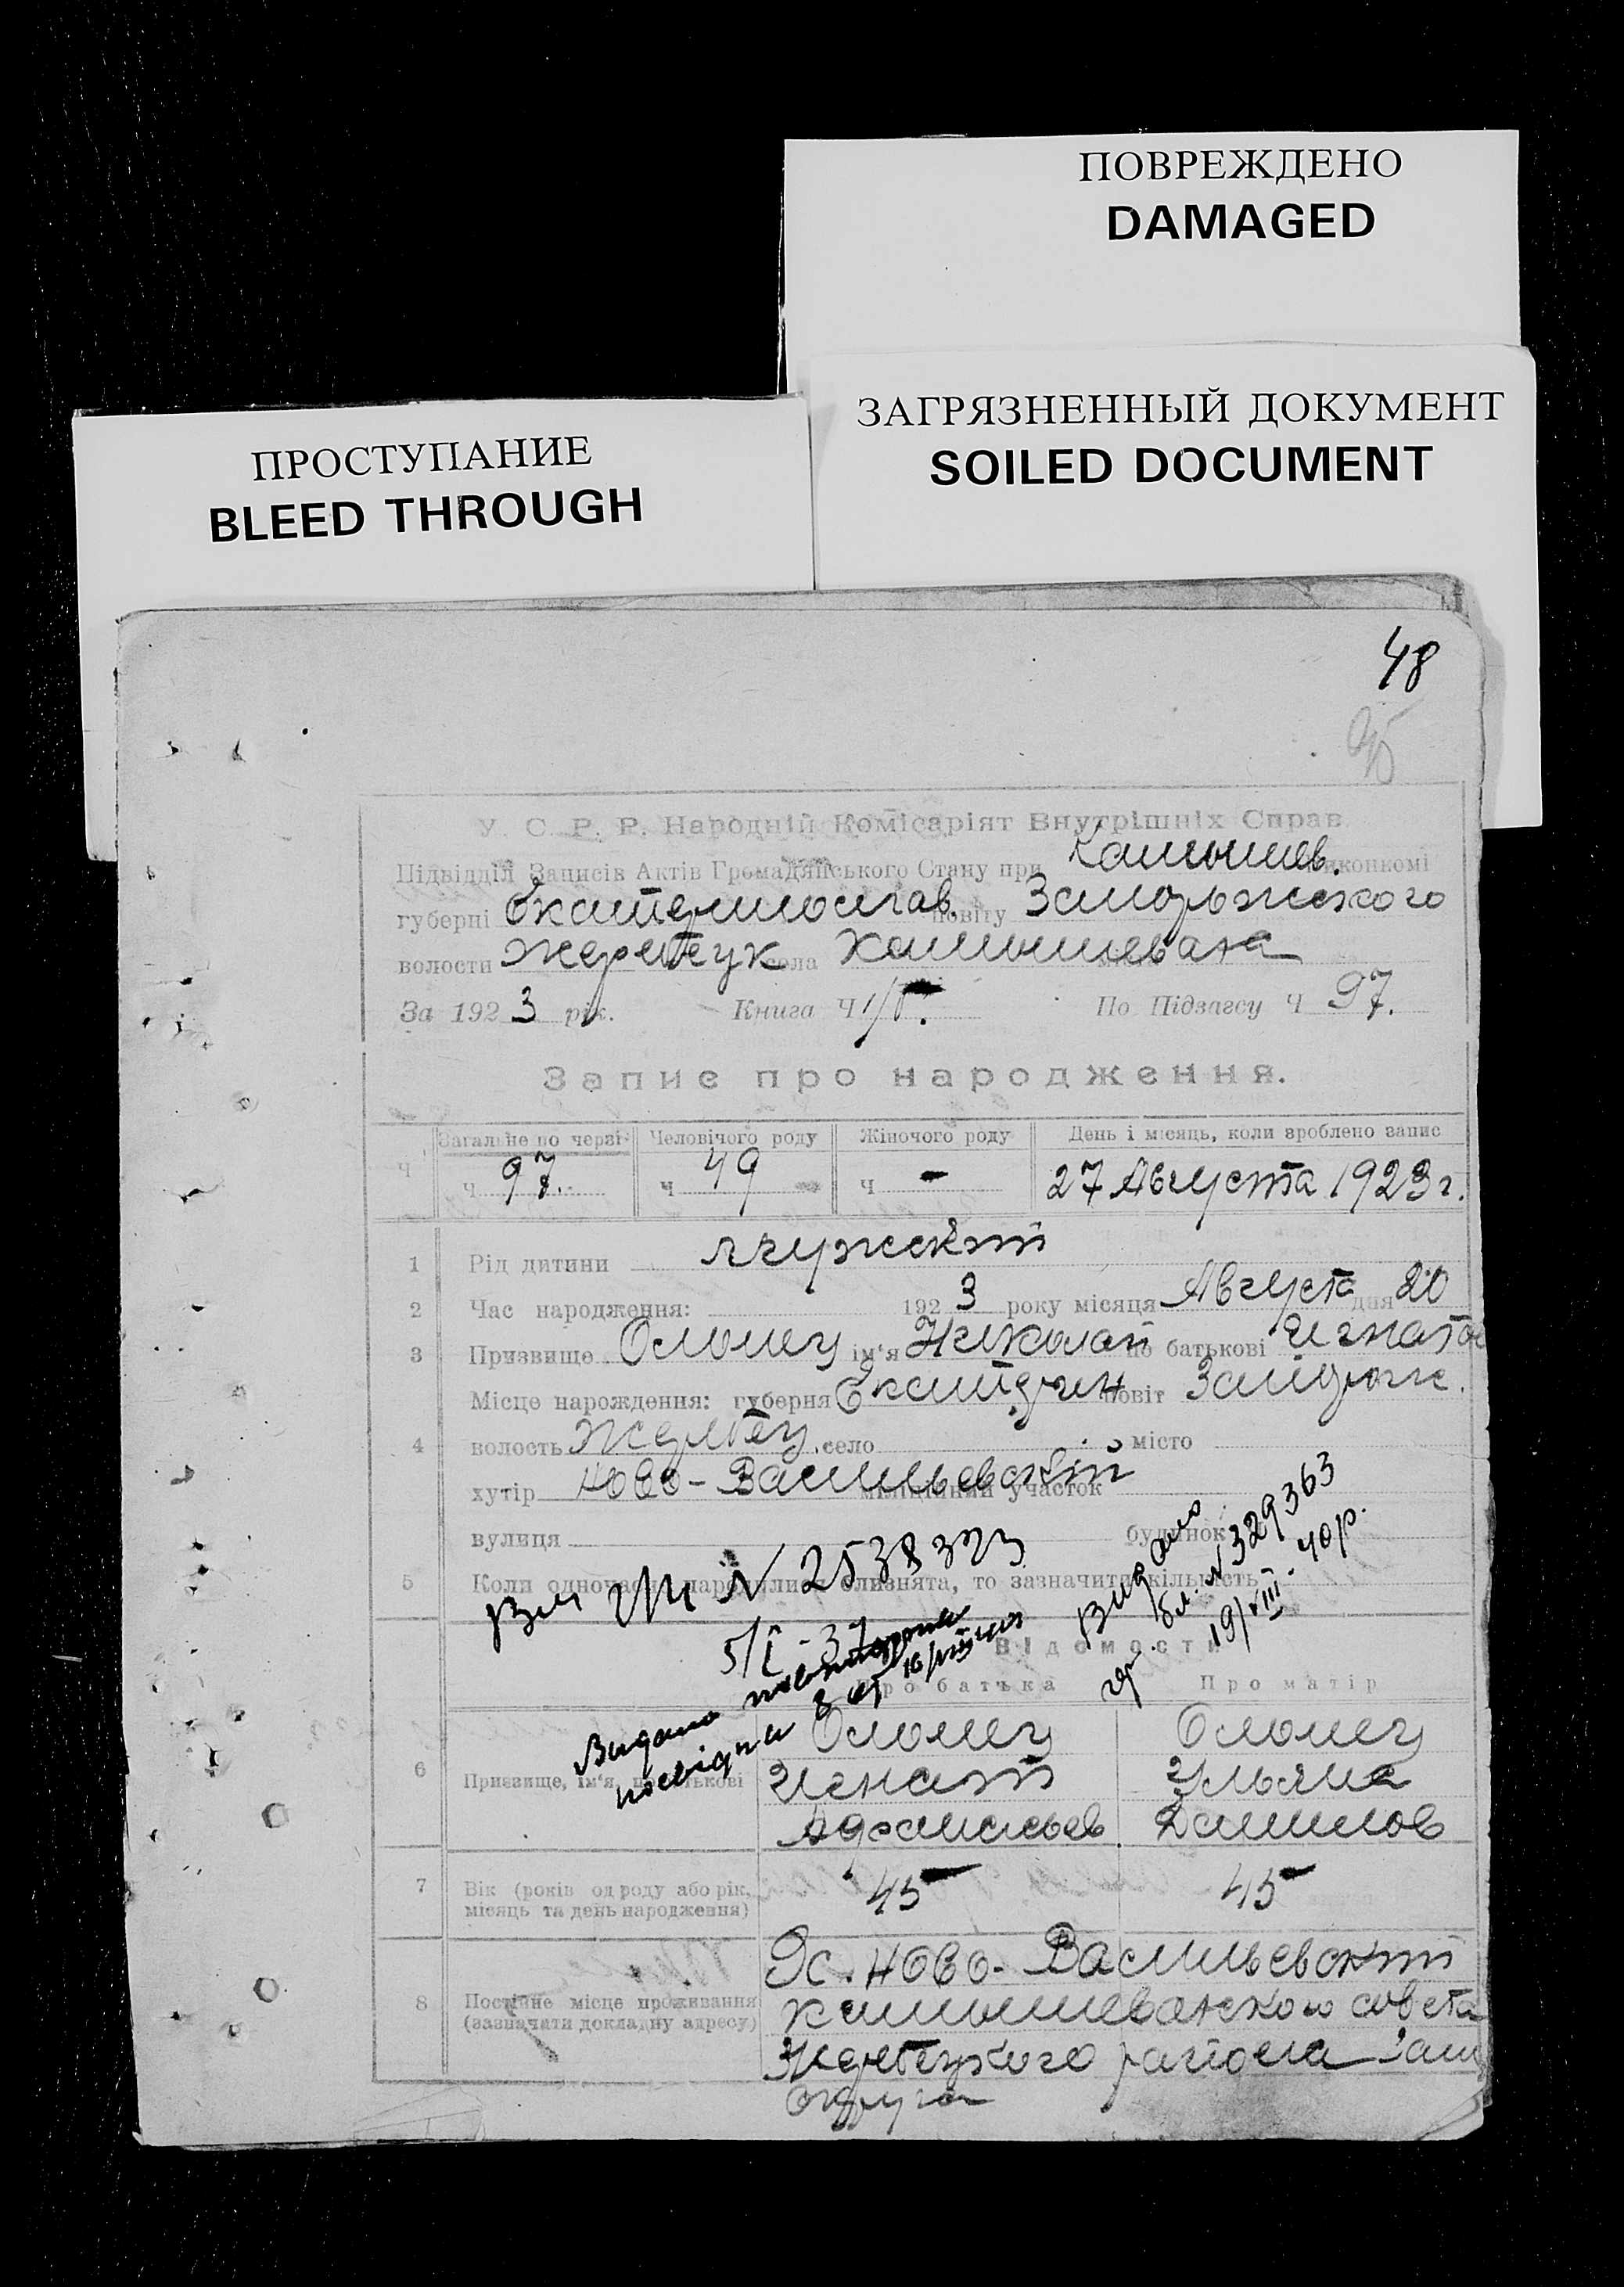 ПОВРЕЖДЕНО
DAMAGED
ЗАГРЯЗНЕННЫЙ ДОКУМЕНТ
SOILED DOCUMENT
ПРОСТУПАНИЕ
BLEED THROUGH
48
95
У. С. Р. Р. Народній Комісаріят Внутрішніх Справ
Підвідділ Записів Актів Громадянського Стану при Камышев. виконкомі
губерні Екатеринослав. повіту Запорожского
волости Жеребецк села Камышеваха
За 1923 рік. Книга Ч По Підзагсу Ч 97.
Запис про народження.
Загальне по черзі Человічого роду Жіночого роду День і місяць, коли зроблено запис
ч ч 97. ч 49 ч - 27 Августа 1923 г.
1 Рід дитини мужской
2 Час народження: 1923 року місяця Августа дня 20
3 Призвище ім'я Николай по батькові Игнатов
4 Місце нарождення: губерня Екатерин повіт Запорож.
волость Жеребец. село місто
хутір Ново-Васильевский міліційний участок
вулиця будинок
5 Коли одночасно народилися близнята, то зазначити кількість
№ 2538323
5/I-37
Видано повторне
посвідка
Видано
№ 329363
19/VIII-40р.
Відомости
Про батька Про матір
6 Призвище, ім'я, по батькові
Игнат Ульяна
Афанасьев Данилов
7 Вік (років од роду або рік, місяць та день народження) 45 45
8 Постійне місце проживання (зазначити докладну адресу)
Х. Ново-Васильевский
Камышеванского совета
Жеребецкого района Зап
округа